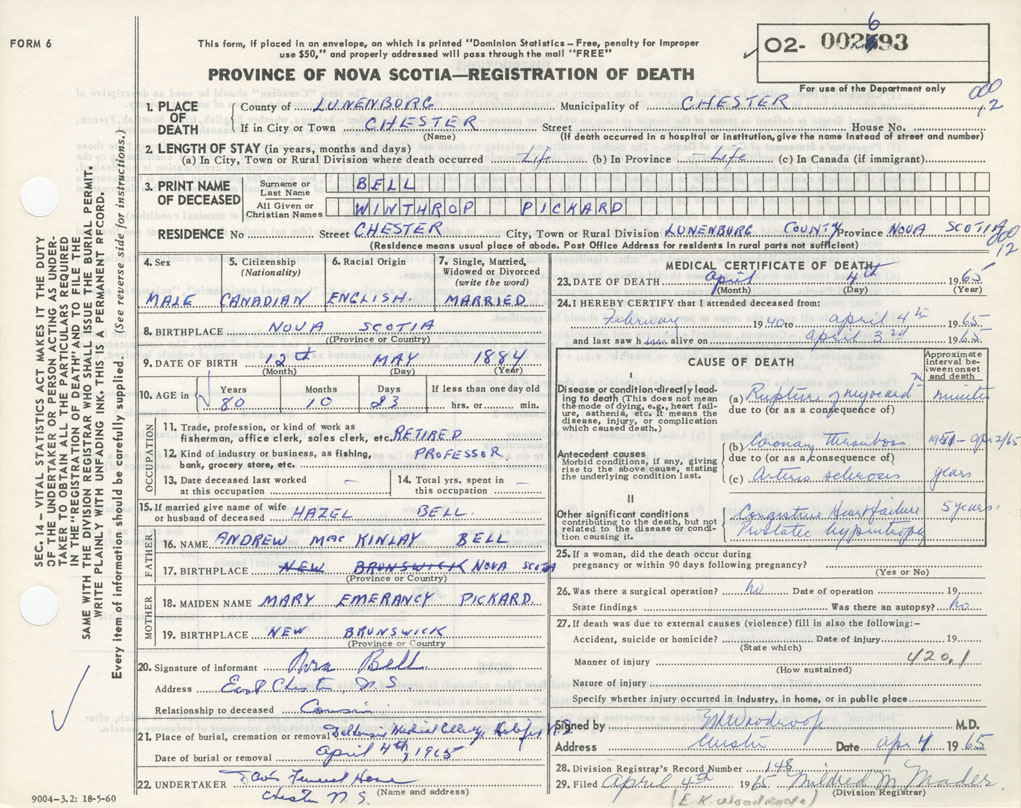 FORM 6
This form, if placed in an envelope, on which is printed "Dominion Statistics – Free, penalty for improper
use $50," and properly addressed will pass through the mail "FREE"
PROVINCE OF NOVA SCOTIA—REGISTRATION OF DEATH
02- 002693
For use of the Department only
000
12
1. PLACE OF DEATH
County of LUNENBURG Municipality of CHESTER
If in City or Town CHESTER Street House No.
(Name) (If death occurred in a hospital or institution, give the name instead of street and number)
2. LENGTH OF STAY (in years, months and days)
(a) In City, Town or Rural Division where death occurred - Life (b) In Province - Life (c) In Canada (if immigrant)
3. PRINT NAME OF DECEASED
Surname or Last Name BELL
All Given or Christian Names WINTHROP PICKARD
RESIDENCE No. Street CHESTER City, Town or Rural Division LUNENBURG COUNTY Province NOVA SCOTIA
(Residence means usual place of abode. Post Office Address for residents in rural parts not sufficient)
000
12
4. Sex 5. Citizenship (Nationality) 6. Racial Origin 7. Single, Married, Widowed or Divorced (write the word)
MALE CANADIAN ENGLISH. MARRIED
8. BIRTHPLACE NOVA SCOTIA
(Province or Country)
9. DATE OF BIRTH 12th MAY 1884
(Month) (Day) (Year)
10. AGE in Years Months Days If less than one day old
80 10 23 hrs. or min.
OCCUPATION
11. Trade, profession, or kind of work as
fisherman, office clerk, sales clerk, etc. RETIRED
12. Kind of industry or business, as fishing,
bank, grocery store, etc. PROFESSOR.
13. Date deceased last worked
at this occupation -
14. Total yrs. spent in
this occupation -
15. If married give name of wife
or husband of deceased HAZEL BELL.
FATHER
16. NAME ANDREW MAC KINLAY BELL
17. BIRTHPLACE NEW BRUNSWICK NOVA SCOTIA
(Province or Country)
MOTHER
18. MAIDEN NAME MARY EMERANCY PICKARD
19. BIRTHPLACE NEW BRUNSWICK
(Province or Country)
20. Signature of informant Bell
Address East Chester, N.S.
Relationship to deceased Cousin
21. Place of burial, cremation or removal Dalhousie Medical College, Halifax N.S
Date of burial or removal April 4th, 1965
22. UNDERTAKER Funeral Home
(Name and address)
Chester N.S.
9004—3.2: 18-5-60
MEDICAL CERTIFICATE OF DEATH
23. DATE OF DEATH April 4th 1965
(Month) (Day) (Year)
24. I HEREBY CERTIFY that I attended deceased from:
February 1940 to April 4th 1965
and last saw him alive on April 3rd 1965
CAUSE OF DEATH
Approximate interval between onset and death
I
Disease or condition directly leading to death (This does not mean the mode of dying, e.g., heart failure, asthenia, etc. It means the disease, injury, or complication which caused death.)
(a) Rupture of myocardm minutes
due to (or as a consequence of)
Antecedent causes
Morbid conditions, if any, giving rise to the above cause, stating the underlying condition last.
(b) Coronary thrombosis
due to (or as a consequence of)
(c) Arterio sclerosis years
II
Other significant conditions
contributing to the death, but not related to the disease or condition causing it.
Congestive Heart failure 5 years.
Prostatic hypertrophy
25. If a woman, did the death occur during
pregnancy or within 90 days following pregnancy?
(Yes or No)
26. Was there a surgical operation? no Date of operation 19
State findings Was there an autopsy? no.
27. If death was due to external causes (violence) fill in also the following:–
Accident, suicide or homicide? Date of injury 19
(State which)
Manner of injury 420.1
(How sustained)
Nature of injury
Specify whether injury occurred in industry, in home, or in public place
Signed by Woodroofe M.D.
Address Chester Date Apr 4 1965
28. Division Registrar's Record Number 148
29. Filed April 4th 1965 Mildred M. Mader
(Division Registrar)
(E.K. Woodroofe)
SEC. 14 —VITAL STATISTICS ACT MAKES IT THE DUTY
OF THE UNDERTAKER OR PERSON ACTING AS UNDER-
TAKER TO OBTAIN ALL THE PARTICULARS REQUIRED
IN THE "REGISTRATION OF DEATH" AND TO FILE THE
SAME WITH THE DIVISION REGISTRAR WHO SHALL ISSUE THE BURIAL PERMIT.
WRITE PLAINLY WITH UNFADING INK. THIS IS A PERMANENT RECORD.
Every item of information should be carefully supplied. (See reverse side for instructions.)